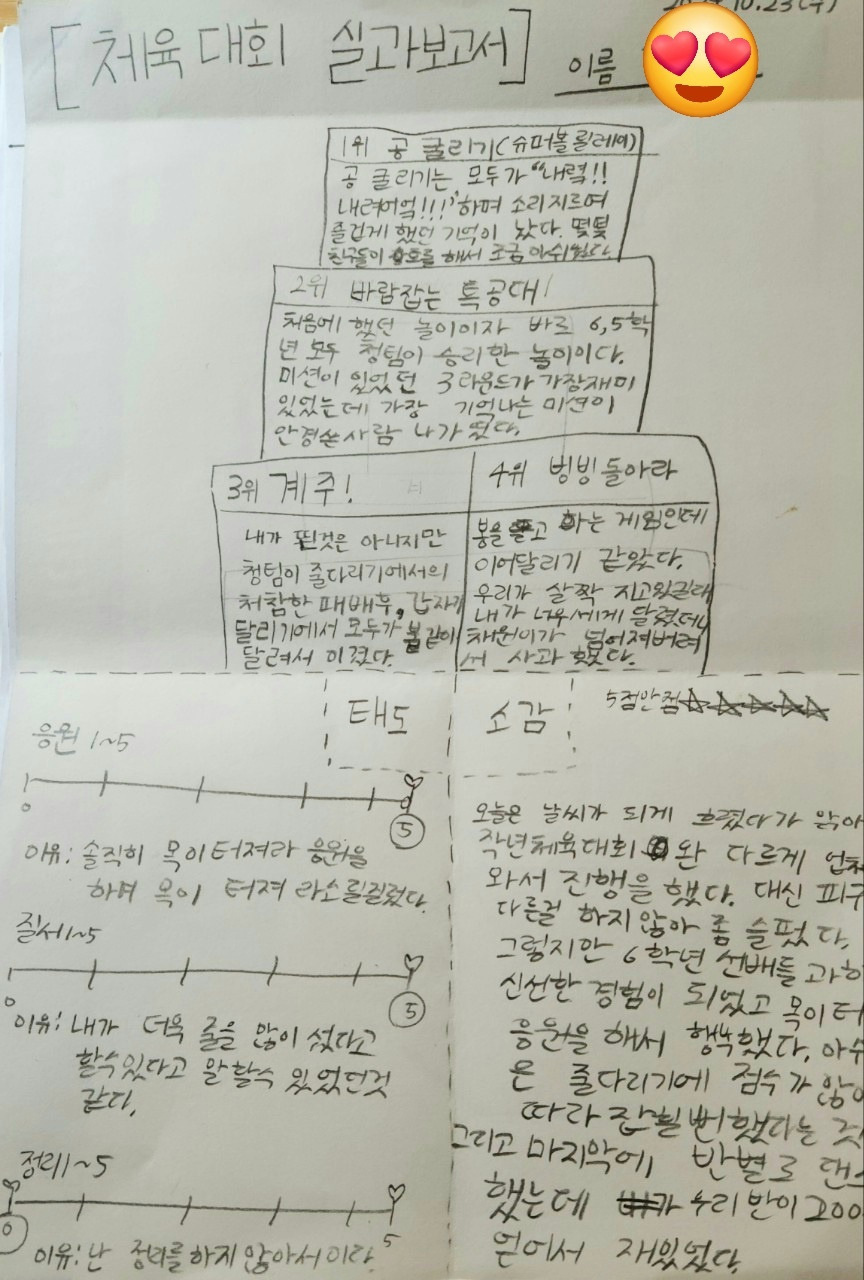 10.23(수)
[체육대회 실고가보고서]
이름
1위 공 굴리기(슈퍼볼릴레이)
공 굴리기는 모두가 "내력!!
내려어얽!!!"하며 소리지르며
즐겁게 했던 기억이 났다. 몇몇
친구들이 를 해서 조금 아쉬웠다.
2위 바람잡는 특공대!
처음에 했던 놀이이자 바로 6,5학
년 모두 청팀이 승리한 놀이이다.
미션이 있었던 3라운드가 가장재미
있었는데 가장 기억나는 미션이
안경쓴사람 나가 였다.
3위 계주!
내가 뛴것은 아니지만
청팀이 줄다리기에서의
처참한 패배후, 갑자기
달리기에서 모두가 같이
달려서 이겼다.
4위 빙빙돌아라
봉을 고 하는 게임인데
이어달리기 같았다.
우리가 살짝 지고있길래
내가 너무세게 달렸더니
채원이가 넘어져버려
서 사과 했다.
태도
소감
5점만점☆☆☆☆☆
응원 1~5
0
5
이유: 솔직히 목이터져라 응원을
하며 목이 터져라소릴질렀다.
질서1~5
0
5
이유: 내가 더욱 줄을 많이 섰다고
할수있다고 말할수 있었던것
같다.
정리1~5
0
5
이유: 난 정리를 하지 않아서이다.
오늘은 날씨가 되게 흐렸다가 맑아
작년체육대회 완 다르게
와서 진행을 했다. 대신 피구
다른걸 하지않아 좀 슬펐다.
그렇지만 6학년 선배들과하
신선한 경험이 되었고 목이터
응원을 해서 행복했다. 아쉬
은 줄다리기에 점수가 많이
따라 잡힐뻔했다는 것
그리고 마지막에 반별로 댄스
했는데 우리 반이 200
얻어서 재있었다.